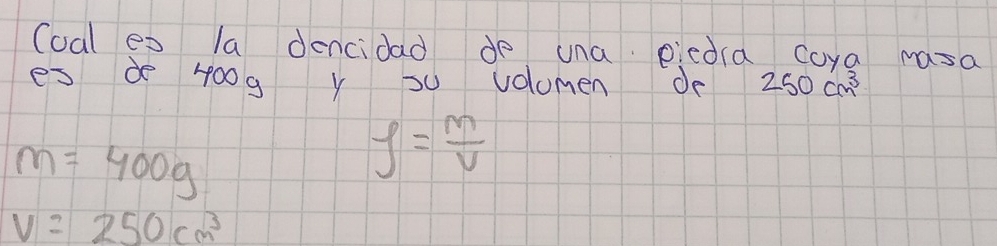 Cual es la dencidad de una piedra cuya masa
es de 400g y su volumen de 250 cm³
m = 400g
ρ = m/v
v = 250 cm³